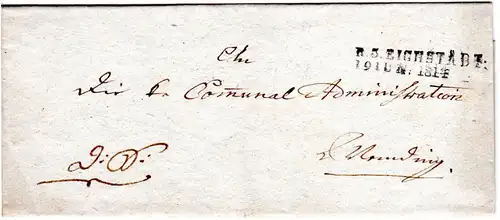 R.S. EICHSTÄDT.
19 IUN: 1814
An
Die k. Communal Administration
Wemding.
D. S.